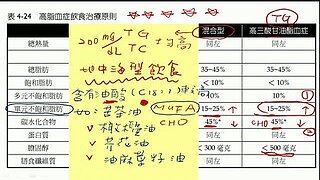 表 4-24 高脂血症飲食治療原則
TG
200 mg/dL TG TC 均高
混合型 高三酸甘油酯血症
總熱量 同左 同左
地中海型飲食
總脂肪 35~45% 35~45%
飽和脂肪 < 10% < 10%
含有油酸(C18:1)
多元不飽和脂肪 10% 10%
單元不飽和脂肪 如:苦茶油 MUFA 15~25% ↑ 15~25% ↑
碳水化合物 橄欖油 CHO 45%* ↓ CHO 45%* ↓
蛋白質 芥花油 同左 同左
膽固醇 油麻菜籽油 < 300 毫克 < 500 毫克
膳食纖維質 同左 同左